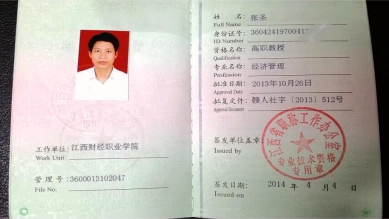 工作单位: 江西财经职业学院
Work Unit
管理号: 3600013102047
File No.
姓名: 张圣
Full Name
身份证号: 3604241970041
ID Number
资格名称: 高职教授
Qualification
专业名称: 经济管理
Profession
批准日期: 2013年10月26日
Approval Date
批复文件: 赣人社字〔2013〕512号
Approval Document
签发单位盖章:
Issued by
江西省职称工作办公室
专业技术资格
专用章
签发日期: 2014年4月4日
Issued on